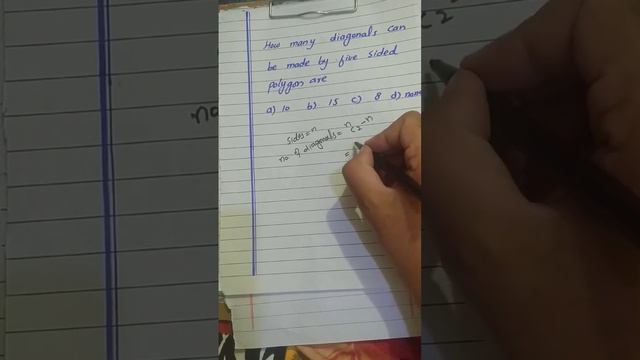 How many diagonals can
be made by five sided
polygon are
a) 10 b) 15 c) 8 d) none
sides = n
no of diagonals = nC2 - n
=